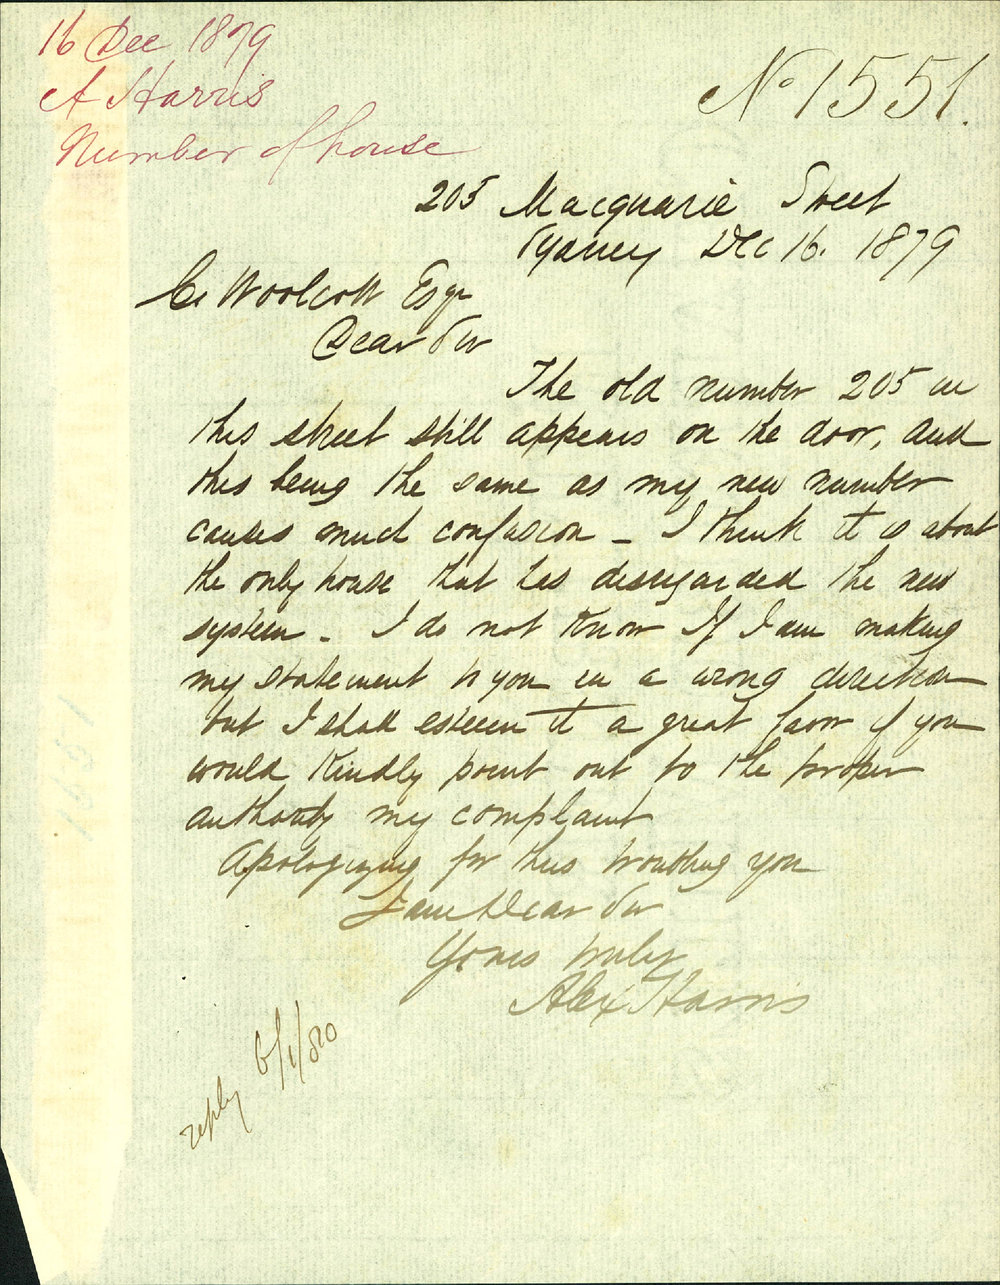 16 Dec 1879
A Harris
Number of house
No 1551.
205 Macquarie Street
Sydney Dec 16. 1879
C. Woolcott Esqr
Dear Sir
The old number 205 in
this street still appears on the door, and
this being the same as my new number
causes much confusion _ I think it is about
the only house that has disregarded the new
system _ I do not know If I am making
my statement to you in a wrong direction
but I shall esteem it a great favor if you
would kindly point out to the proper
authority my complaint
Apologizing for thus troubling you
I am Dear Sir
Yours truly
Alex Harris
reply 6/1/80